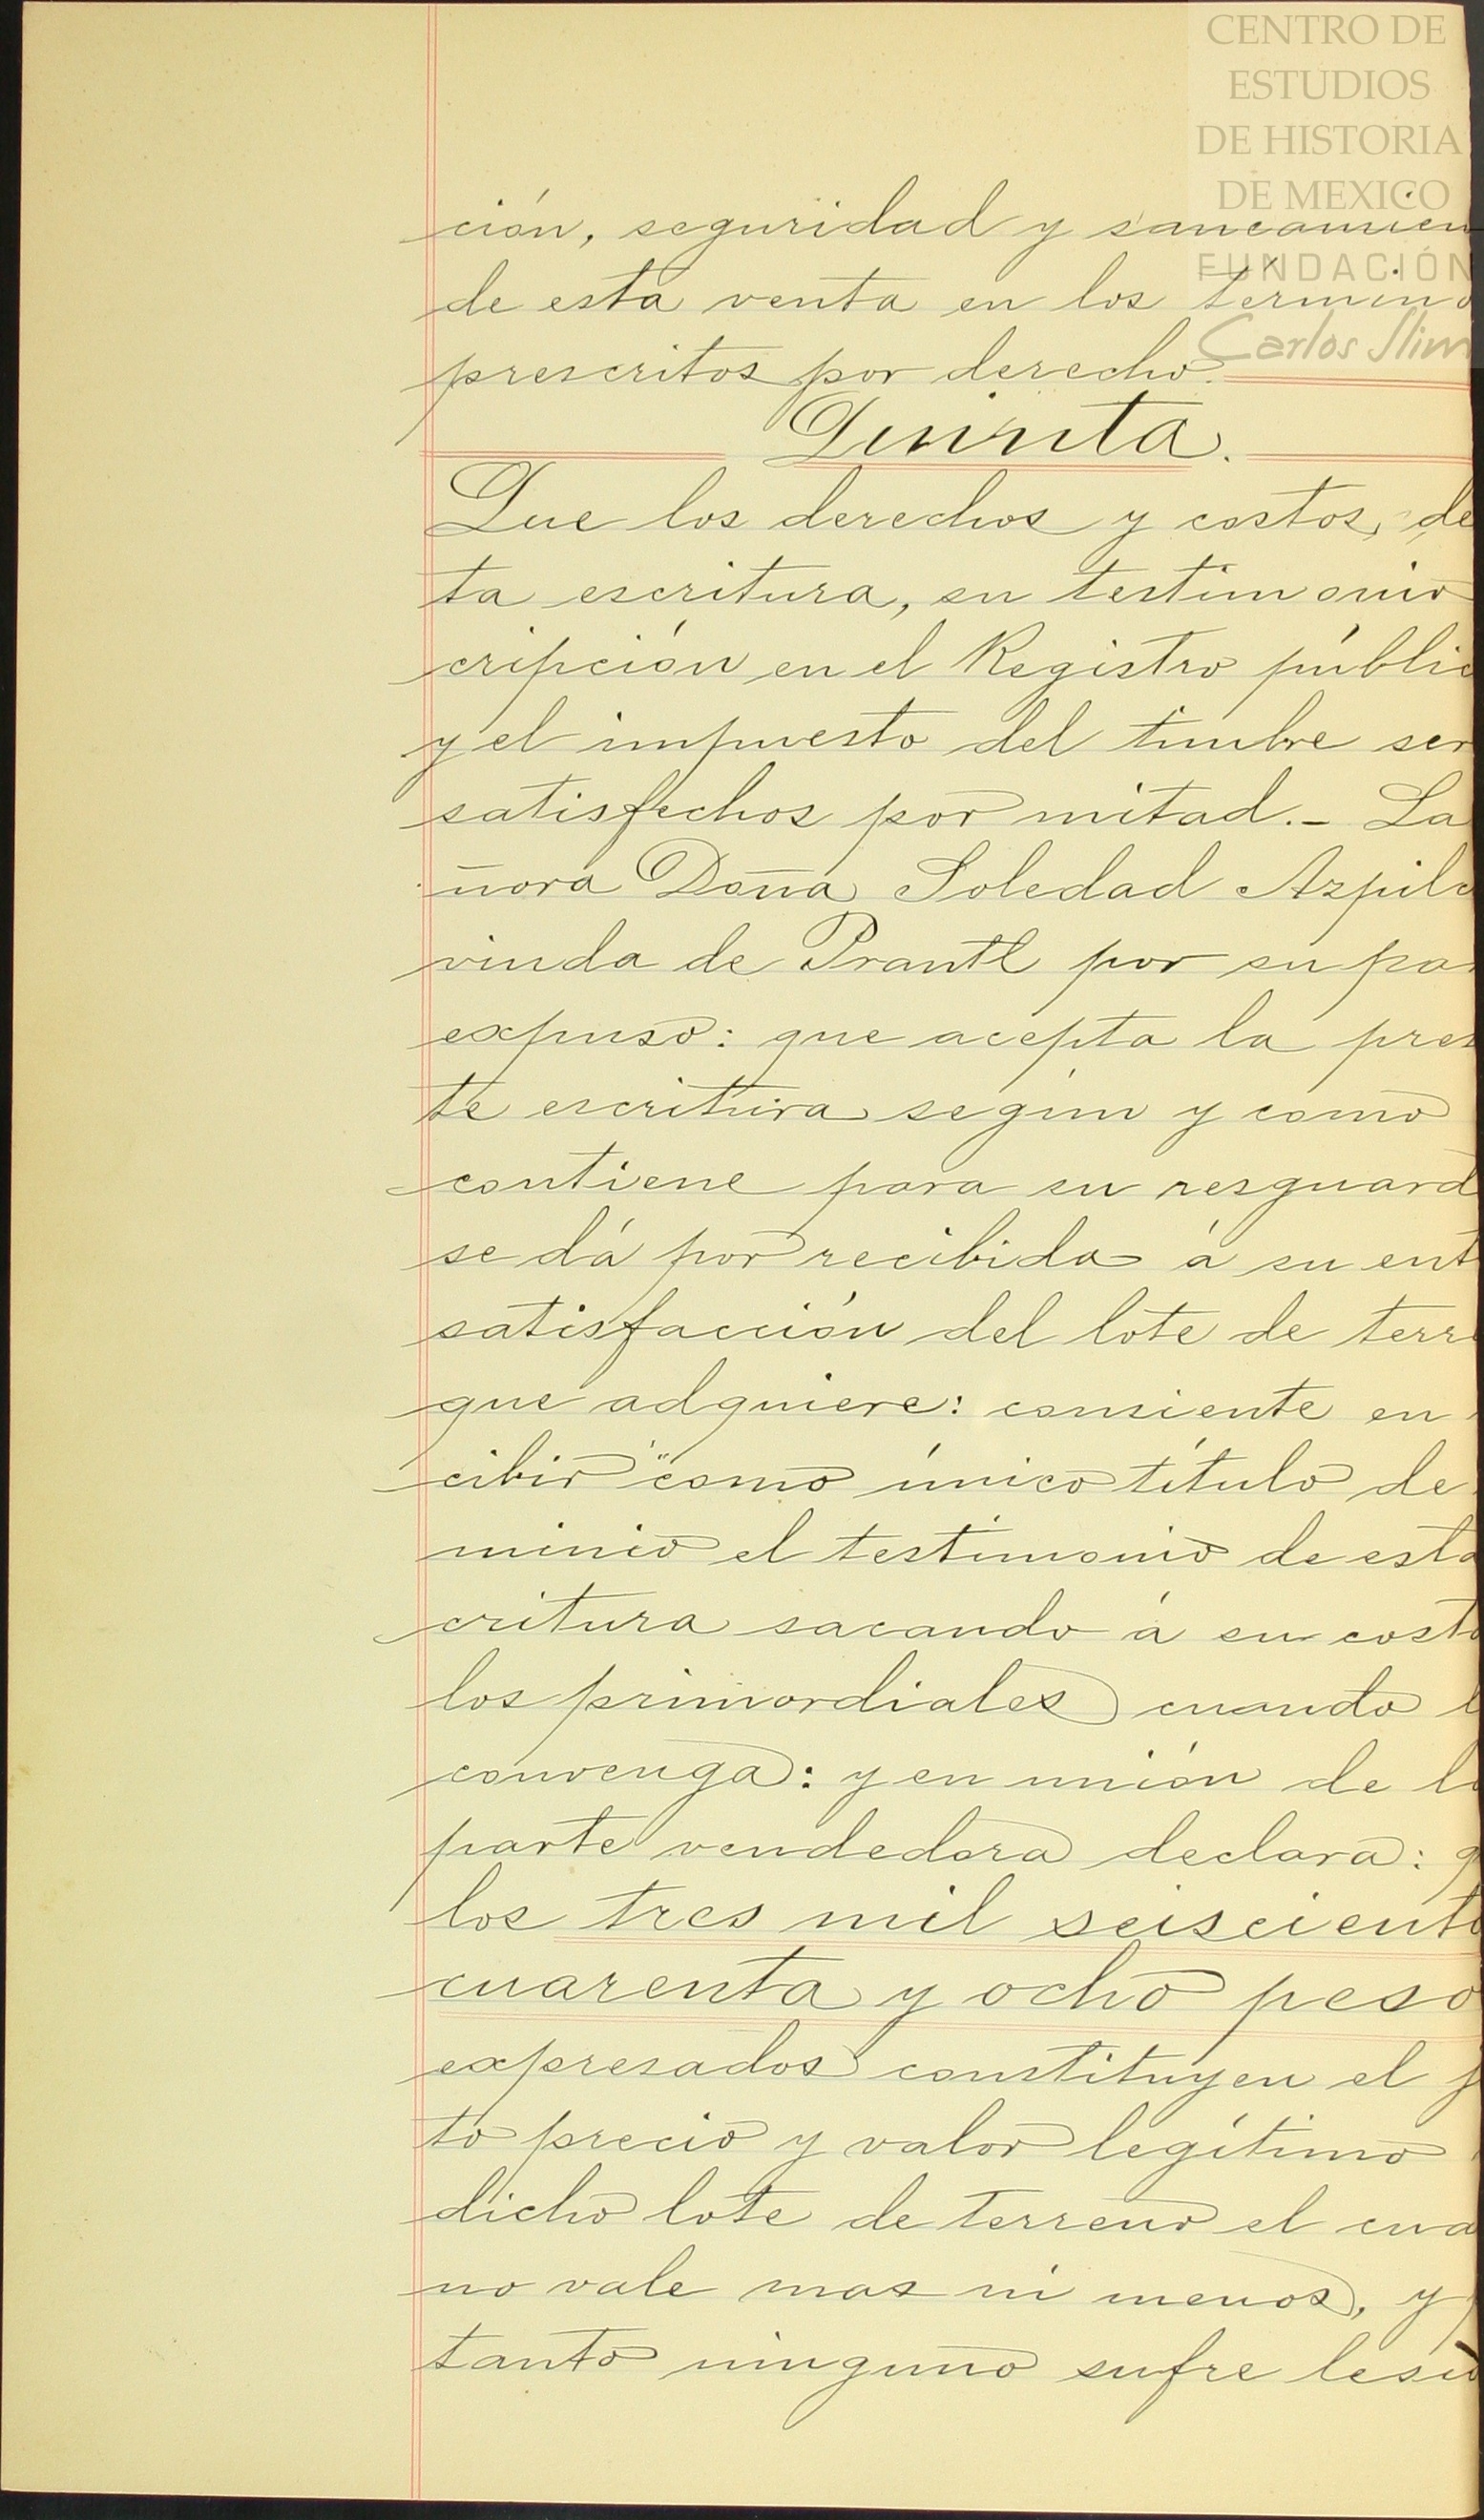 CENTRO DE
ESTUDIOS
DE HISTORIA
DE MEXICO
FUNDACIÓN
Carlos Slim
ción, seguridad y saneamien
de esta venta en los término
prescritos por derecho.
Quinta.
Que los derechos y costos, de
ta escritura, su testimonio
cripción en el Registro públic
y el impuesto del timbre ser
satisfechos por mitad.- La
ñora Doña Soledad Azpilc
viuda de Prantl por su pa
expuso: que acepta la pres
te escritura según y como
contiene para su resguard
se dá por recibida á su ent
satisfacción del lote de terre
que adquiere: consiente en
cibir como único título de
minio el testimonio de esta
critura sacando á su costa
los primordiales cuando l
convenga: y en unión de la
parte vendedora declara: q
los tres mil seisciento
cuarenta y ocho peso
expresados constituyen el j
to precio y valor legítimo
dicho lote de terreno el cua
no vale mas ni menos, y
tanto ninguno sufre lesió